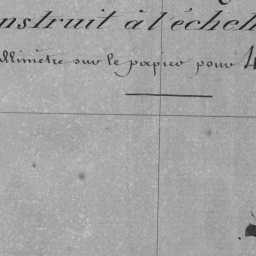 nstruit à l'échel
llimètre sur le papier pour 4